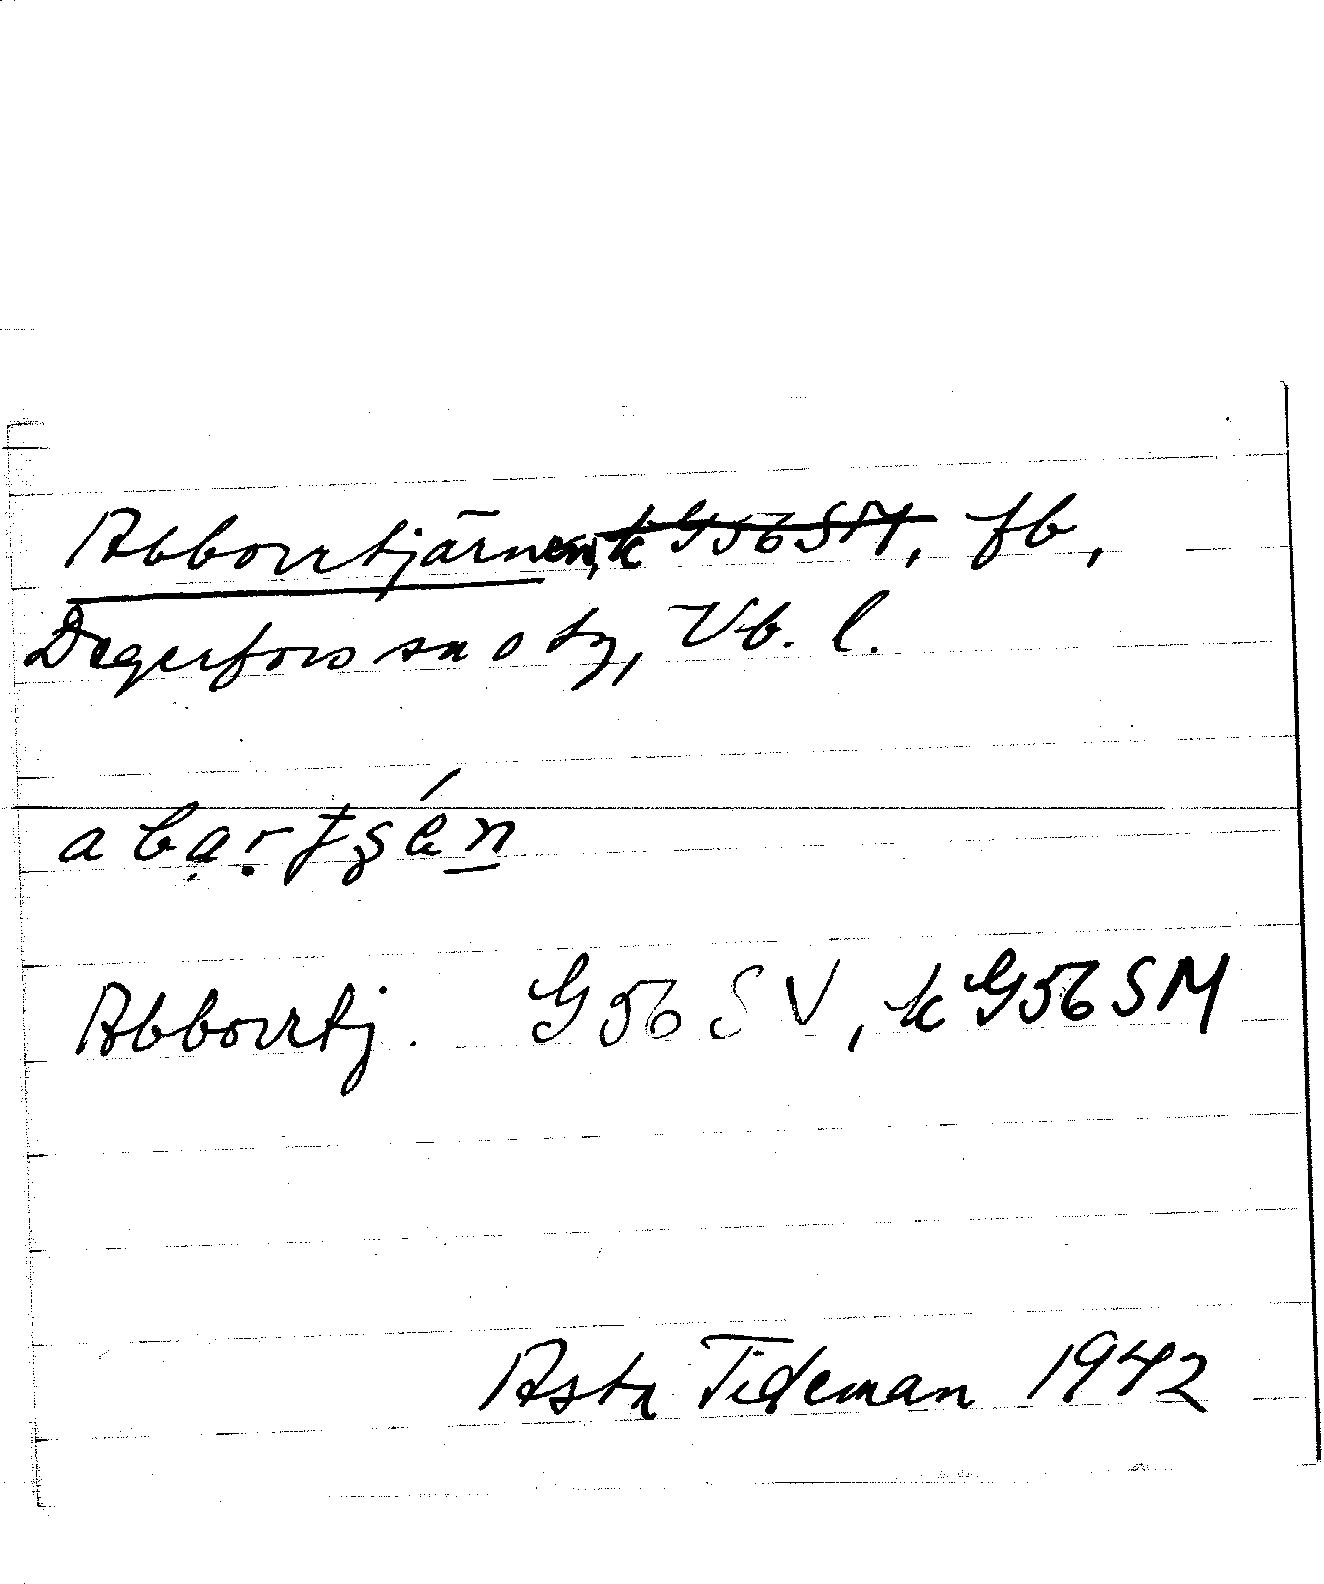 Abborrtjärnen, k G56SM, fb,
Degerfors sn o tg, Vb. l.
Abborrtj. G56 SV, k G56 SM
Asta Tideman 1942